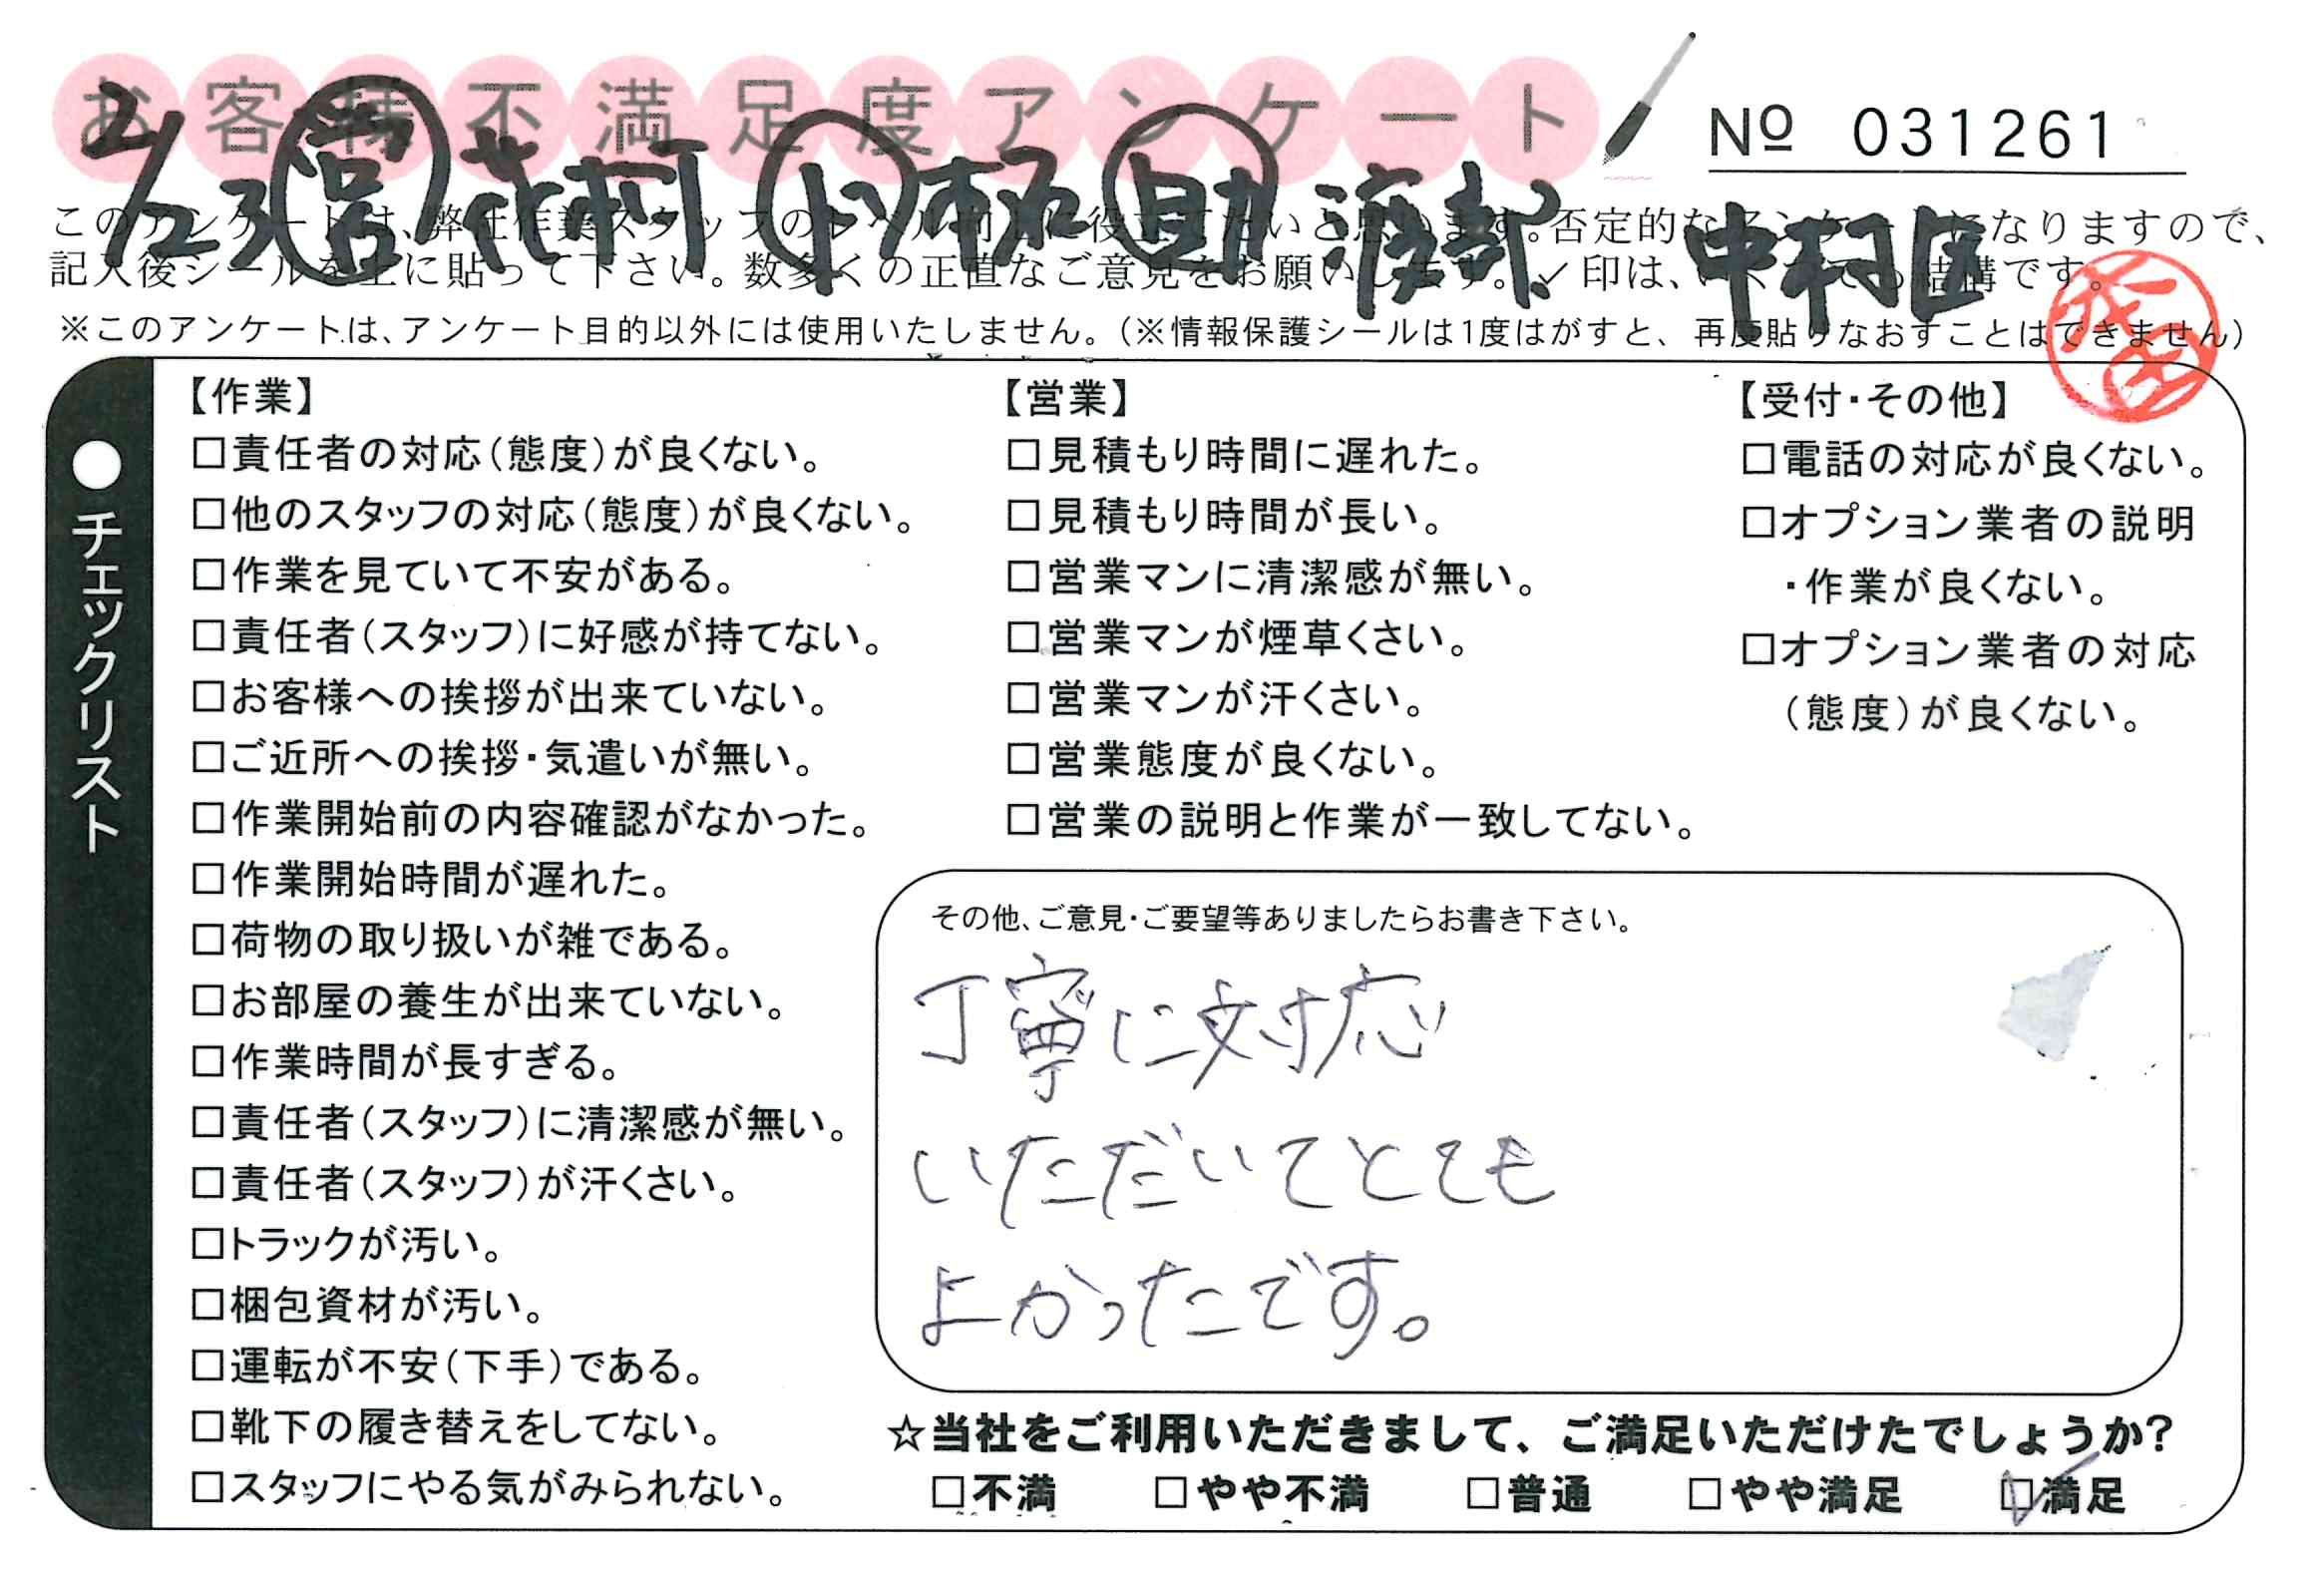 お客様不満足度アンケート
№ 031261
2/23 営 花村 ド 柘 助 渡部 中村区
このアンケートは、弊社作業スタッフのレベル向上に役立てたいと思います。否定的なアンケートになりますので、
記入後シールを上に貼って下さい。数多くの正直なご意見をお願いします。✓印は、いくつでも結構です。
※このアンケートは、アンケート目的以外には使用いたしません。（※情報保護シールは1度はがすと、再度貼りなおすことはできません）
●チェックリスト
【作業】
□責任者の対応（態度）が良くない。
□他のスタッフの対応（態度）が良くない。
□作業を見ていて不安がある。
□責任者（スタッフ）に好感が持てない。
□お客様への挨拶が出来ていない。
□ご近所への挨拶・気遣いが無い。
□作業開始前の内容確認がなかった。
□作業開始時間が遅れた。
□荷物の取り扱いが雑である。
□お部屋の養生が出来ていない。
□作業時間が長すぎる。
□責任者（スタッフ）に清潔感が無い。
□責任者（スタッフ）が汗くさい。
□トラックが汚い。
□梱包資材が汚い。
□運転が不安（下手）である。
□靴下の履き替えをしてない。
□スタッフにやる気がみられない。
【営業】
□見積もり時間に遅れた。
□見積もり時間が長い。
□営業マンに清潔感が無い。
□営業マンが煙草くさい。
□営業マンが汗くさい。
□営業態度が良くない。
□営業の説明と作業が一致してない。
【受付・その他】
□電話の対応が良くない。
□オプション業者の説明
・作業が良くない。
□オプション業者の対応
（態度）が良くない。
その他、ご意見・ご要望等ありましたらお書き下さい。
丁寧に対応
いただいてとても
よかったです。
☆当社をご利用いただきまして、ご満足いただけたでしょうか？
□不満 □やや不満 □普通 □やや満足 ☑満足